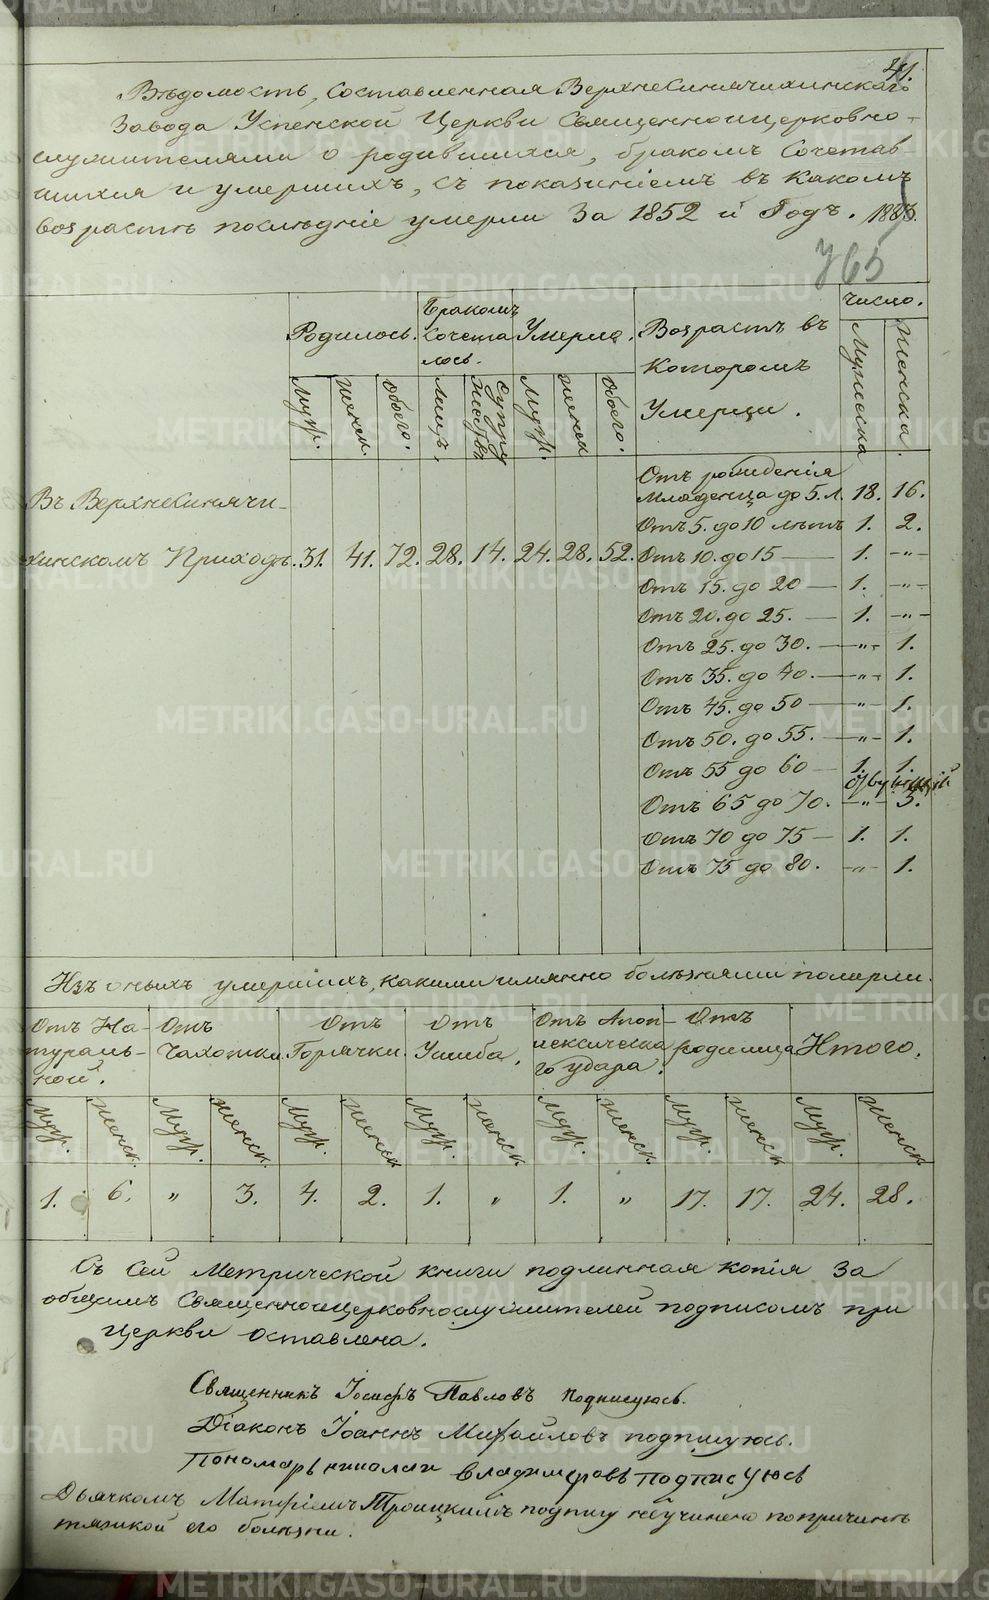 41.
Вѣдомость, Составленная ВерхнеСинячихинскаго
Завода Успенской Церкви Священноицерковно-
служителями о родившихся, бракомъ Сочетав
шихся и умершихъ, съ показаніемъ въ какомъ
возрастѣ послѣдніе умерли За 1852 й Годъ.
765
Родилось. Бракомъ Сочета лось. Умерло. Возрастъ въ Которомъ Умерли. Число.
Муж. Женск. Обоего. Лицъ. Супружествъ Муж. Женск Обоего. Мужеска Женска.
Въ ВерхнеСинячи-
хинскомъ Приходѣ. 31. 41. 72. 28. 14. 24. 28. 52.
Отъ рожденія
младенца до 5. л. 18. 16.
Отъ 5. до 10 лѣтъ 1. 2.
Отъ 10. до 15 — 1. -„-
Отъ 15. до 20 — 1. -„-
Отъ 20. до 25. — 1. -„-
Отъ 25. до 30. — -„- 1.
Отъ 35. до 40. — -„- 1.
Отъ 45. до 50 — -„- 1.
Отъ 50. до 55. — -„- 1.
Отъ 55 до 60 — 1. 1.
Отъ 65 до 70. — -„- 3.
Отъ 70 до 75 — 1. 1.
Отъ 75 до 80. -„- 1.
Изъ оныхъ умершихъ, какими имянно болѣзнями померли.
Отъ На-
тураль-
ной. Отъ
Чахотки Отъ
Горячки. Отъ
Ушиба. Отъ Апоп-
лексическа
го удара. Отъ
родимца Итого.
Муж. Женск. Муж. Женск. Муж. Женск Муж. Женск Муж. Женск. Муж. Женск Муж. Женск
1. 6. „ 3. 4. 2. 1. „ 1. „ 17. 17. 24. 28.
Съ Сей Метрической книги подлинная копія За
общимъ Священноицерковнослужителей подписомъ при
Церкви оставлена.
Священникъ Іосифъ Павловъ подписуюсь.
Діаконъ Іоаннъ Михайловъ подписуюсь.
Пономарь николаи владимировъ подписуюсь
Дьячкомъ Матфіемъ Троицкимъ подпису неучинено попричинѣ
тяжкой его болѣзни.
METRIKI.GASO-URAL.RU